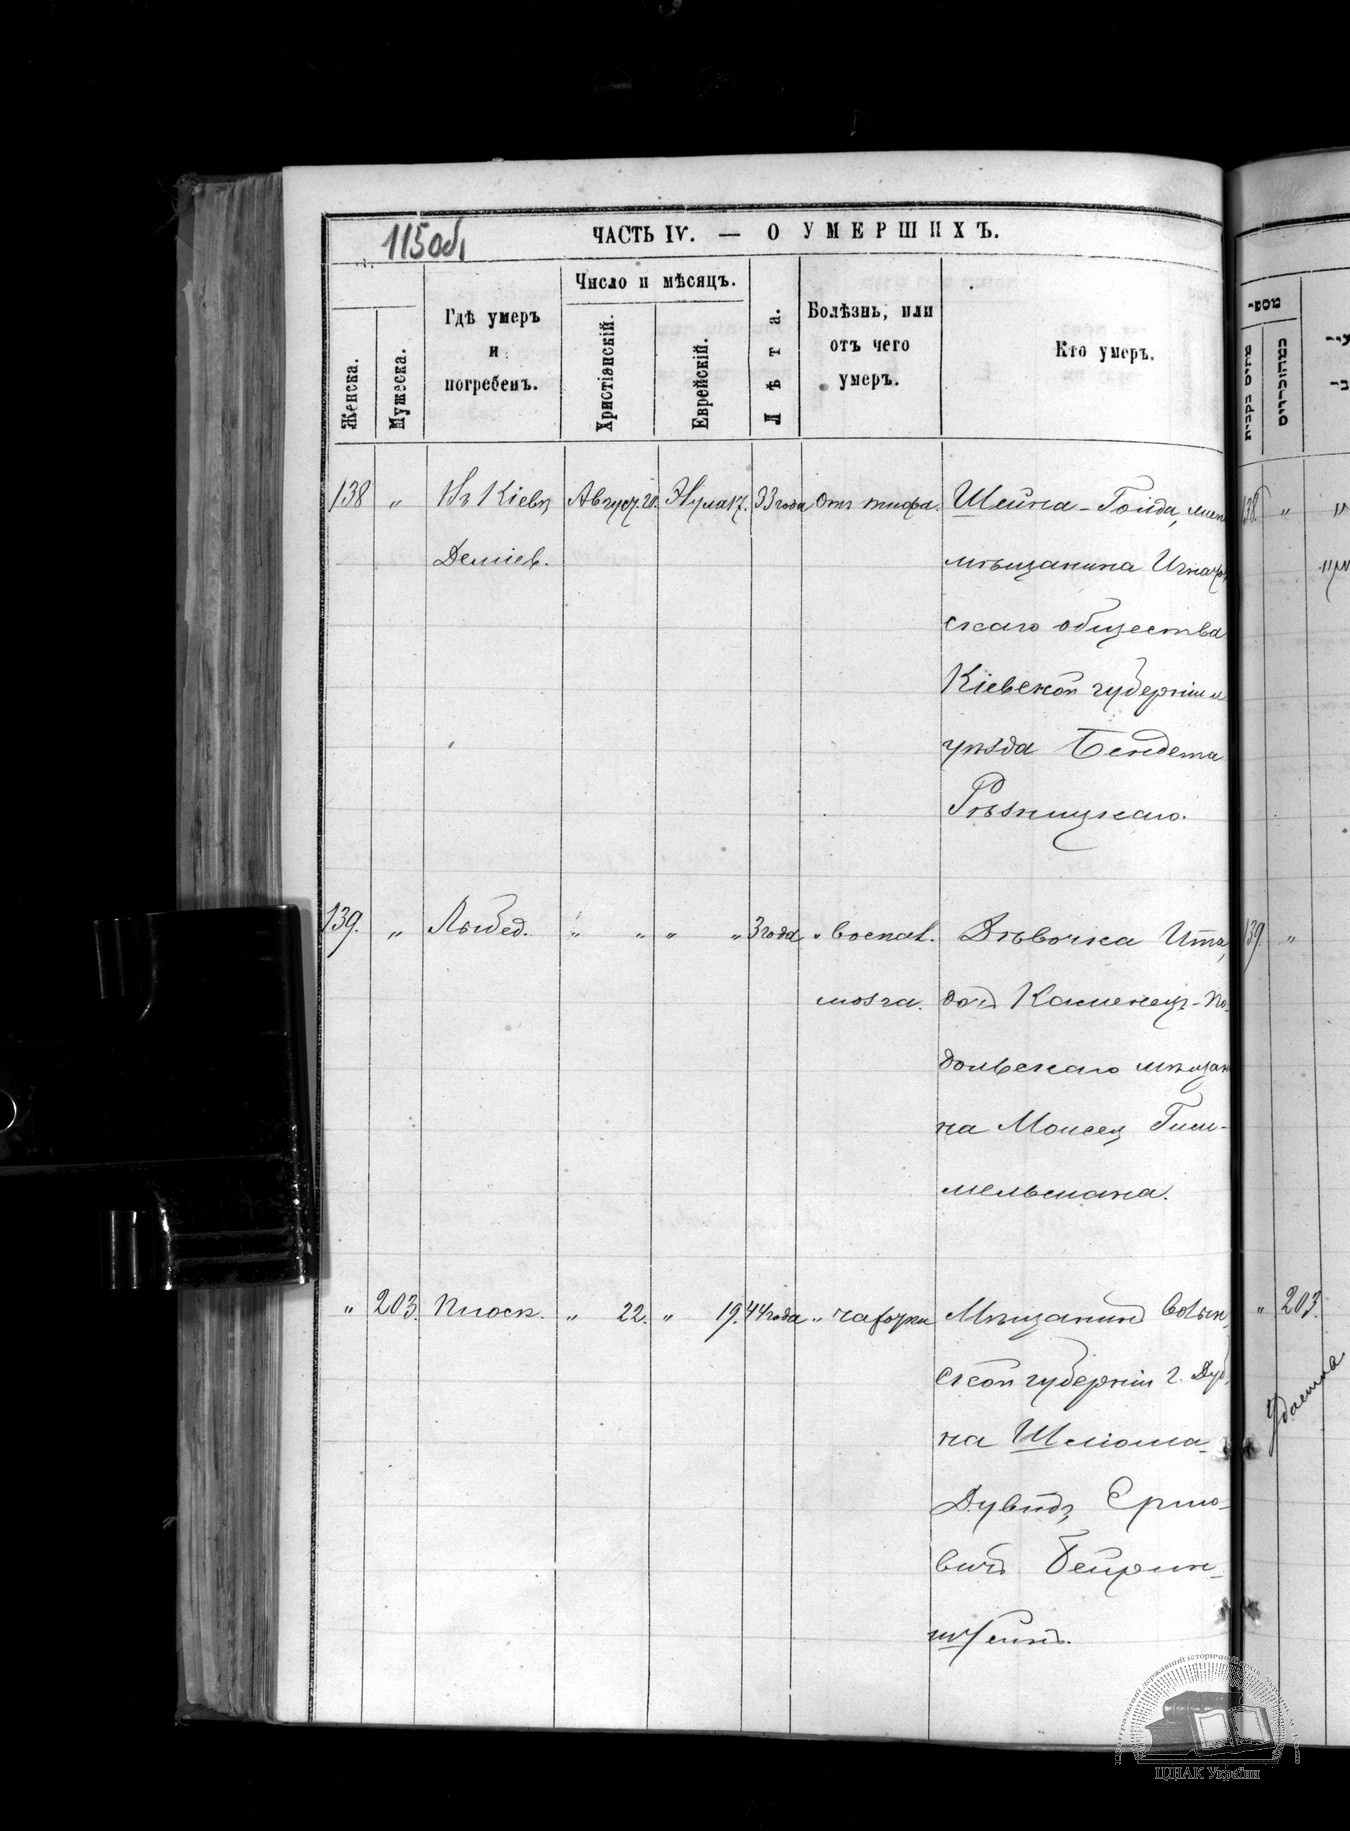 115об,
ЧАСТЬ IV. — О УМЕРШИХЪ.
Женска.
Мужеска.
Гдѣ умеръ
и
погребенъ.
Число и мѣсяцъ.
Христіанскій.
Еврейскій.
Лѣта.
Болѣзнь, или
отъ чего
умеръ.
Кто умеръ.
138 " Въ Кіевѣ Август. 20. Элула 17. 33 года Отъ тифа. Шейна-Гольда,
Деміев. мѣщанина
скаго общества
Кіевской губерніи и
уѣзда Бендета
Рѣзницкаго.
139. " Лыбед. " " " " 3 года " воспал. Дѣвочка Ита,
мозга. дочь Каменецъ-По-
дольскаго мѣщани
на Моисея Гим-
мельмана.
" 203. Плоск. " 22. " 19. 44 года " чахотки Мѣщанинъ Волын,
ской губерніи г. Дуб,
на Шліома-
Дувидъ Ершо-
вичъ Бейрин-
штейнъ.
מספר
138 "
139. "
" 203.
ЦДІАК України